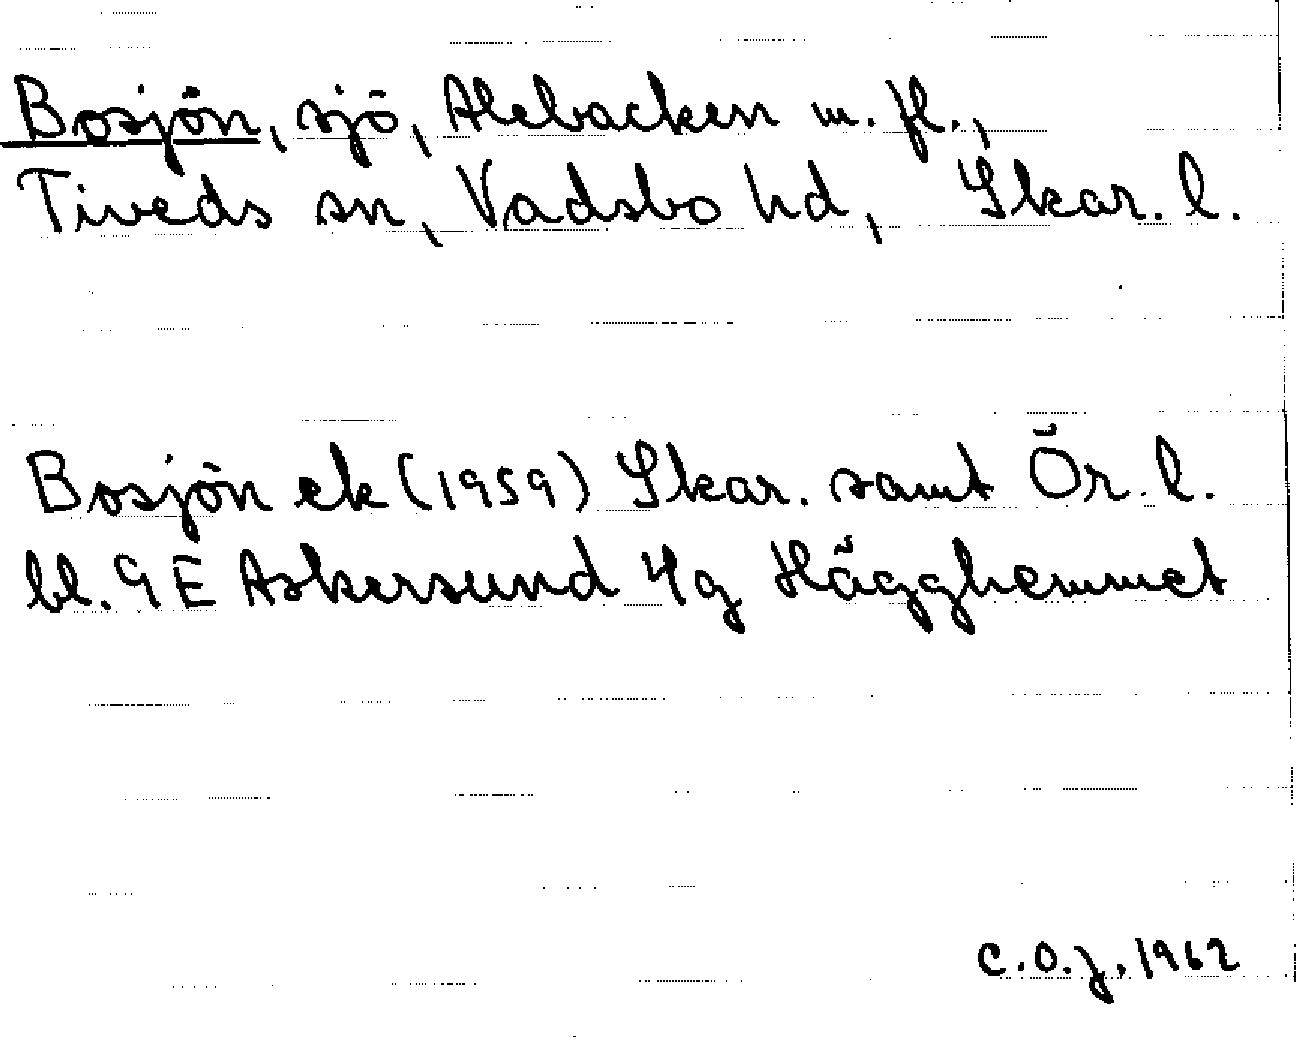 Bosjön, sjö, Alebacken m. fl.,
Tiveds sn, Vadsbo hd, Skar. l.
Bosjön ek (1959) Skar. samt Ör. l.
bl. 9E Askersund 4g Hägghemmet
C.O.J. 1962